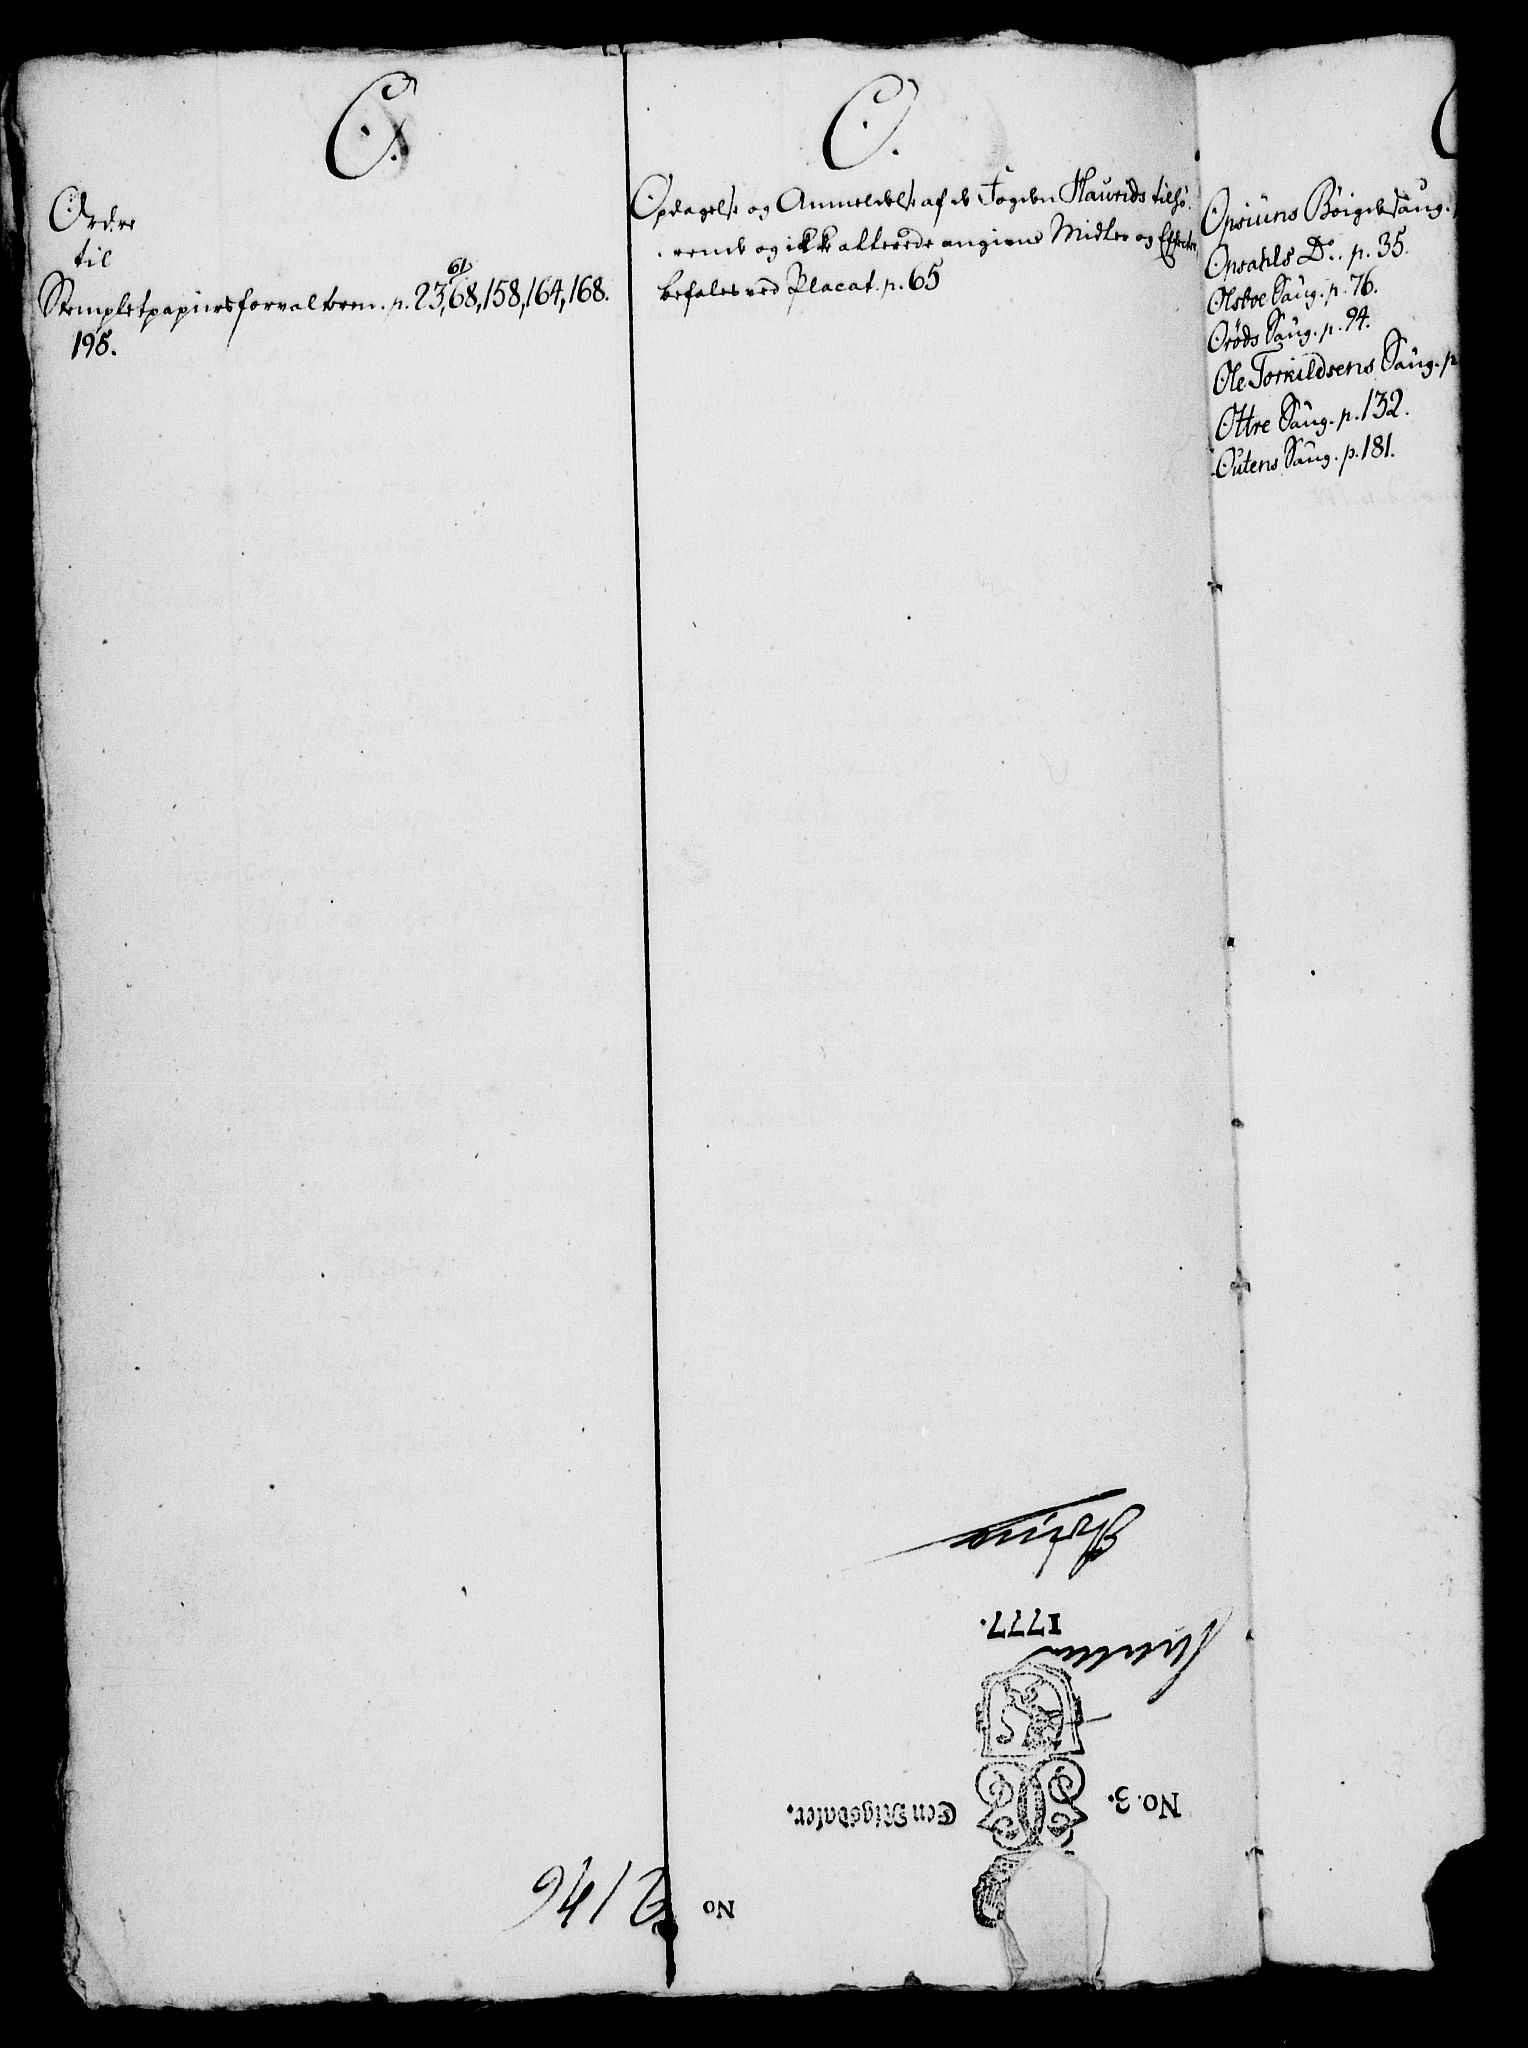 O.
Ordre
til
Stempletpapiirsforvalteren. p. 23, 61, 68, 158, 164, 168.
195.
O.
Opdagelse og Anmeldelse af de Fogden Hauvids tilhø-
rende og ikke allerede angivne Midler og Effecter
befales ved Placat. p. 65
O
Opsiüns Böigdesaug.
Onsahls Do. p. 35.
Olstve Saug. p. 76.
Oröds Saug. p. 94.
Ole Torkildsens Saug. p
Ottre Saug. p. 132.
Outens Saug. p. 181.
1777.
No. 3.
Een Rigsdaler.
No 2146